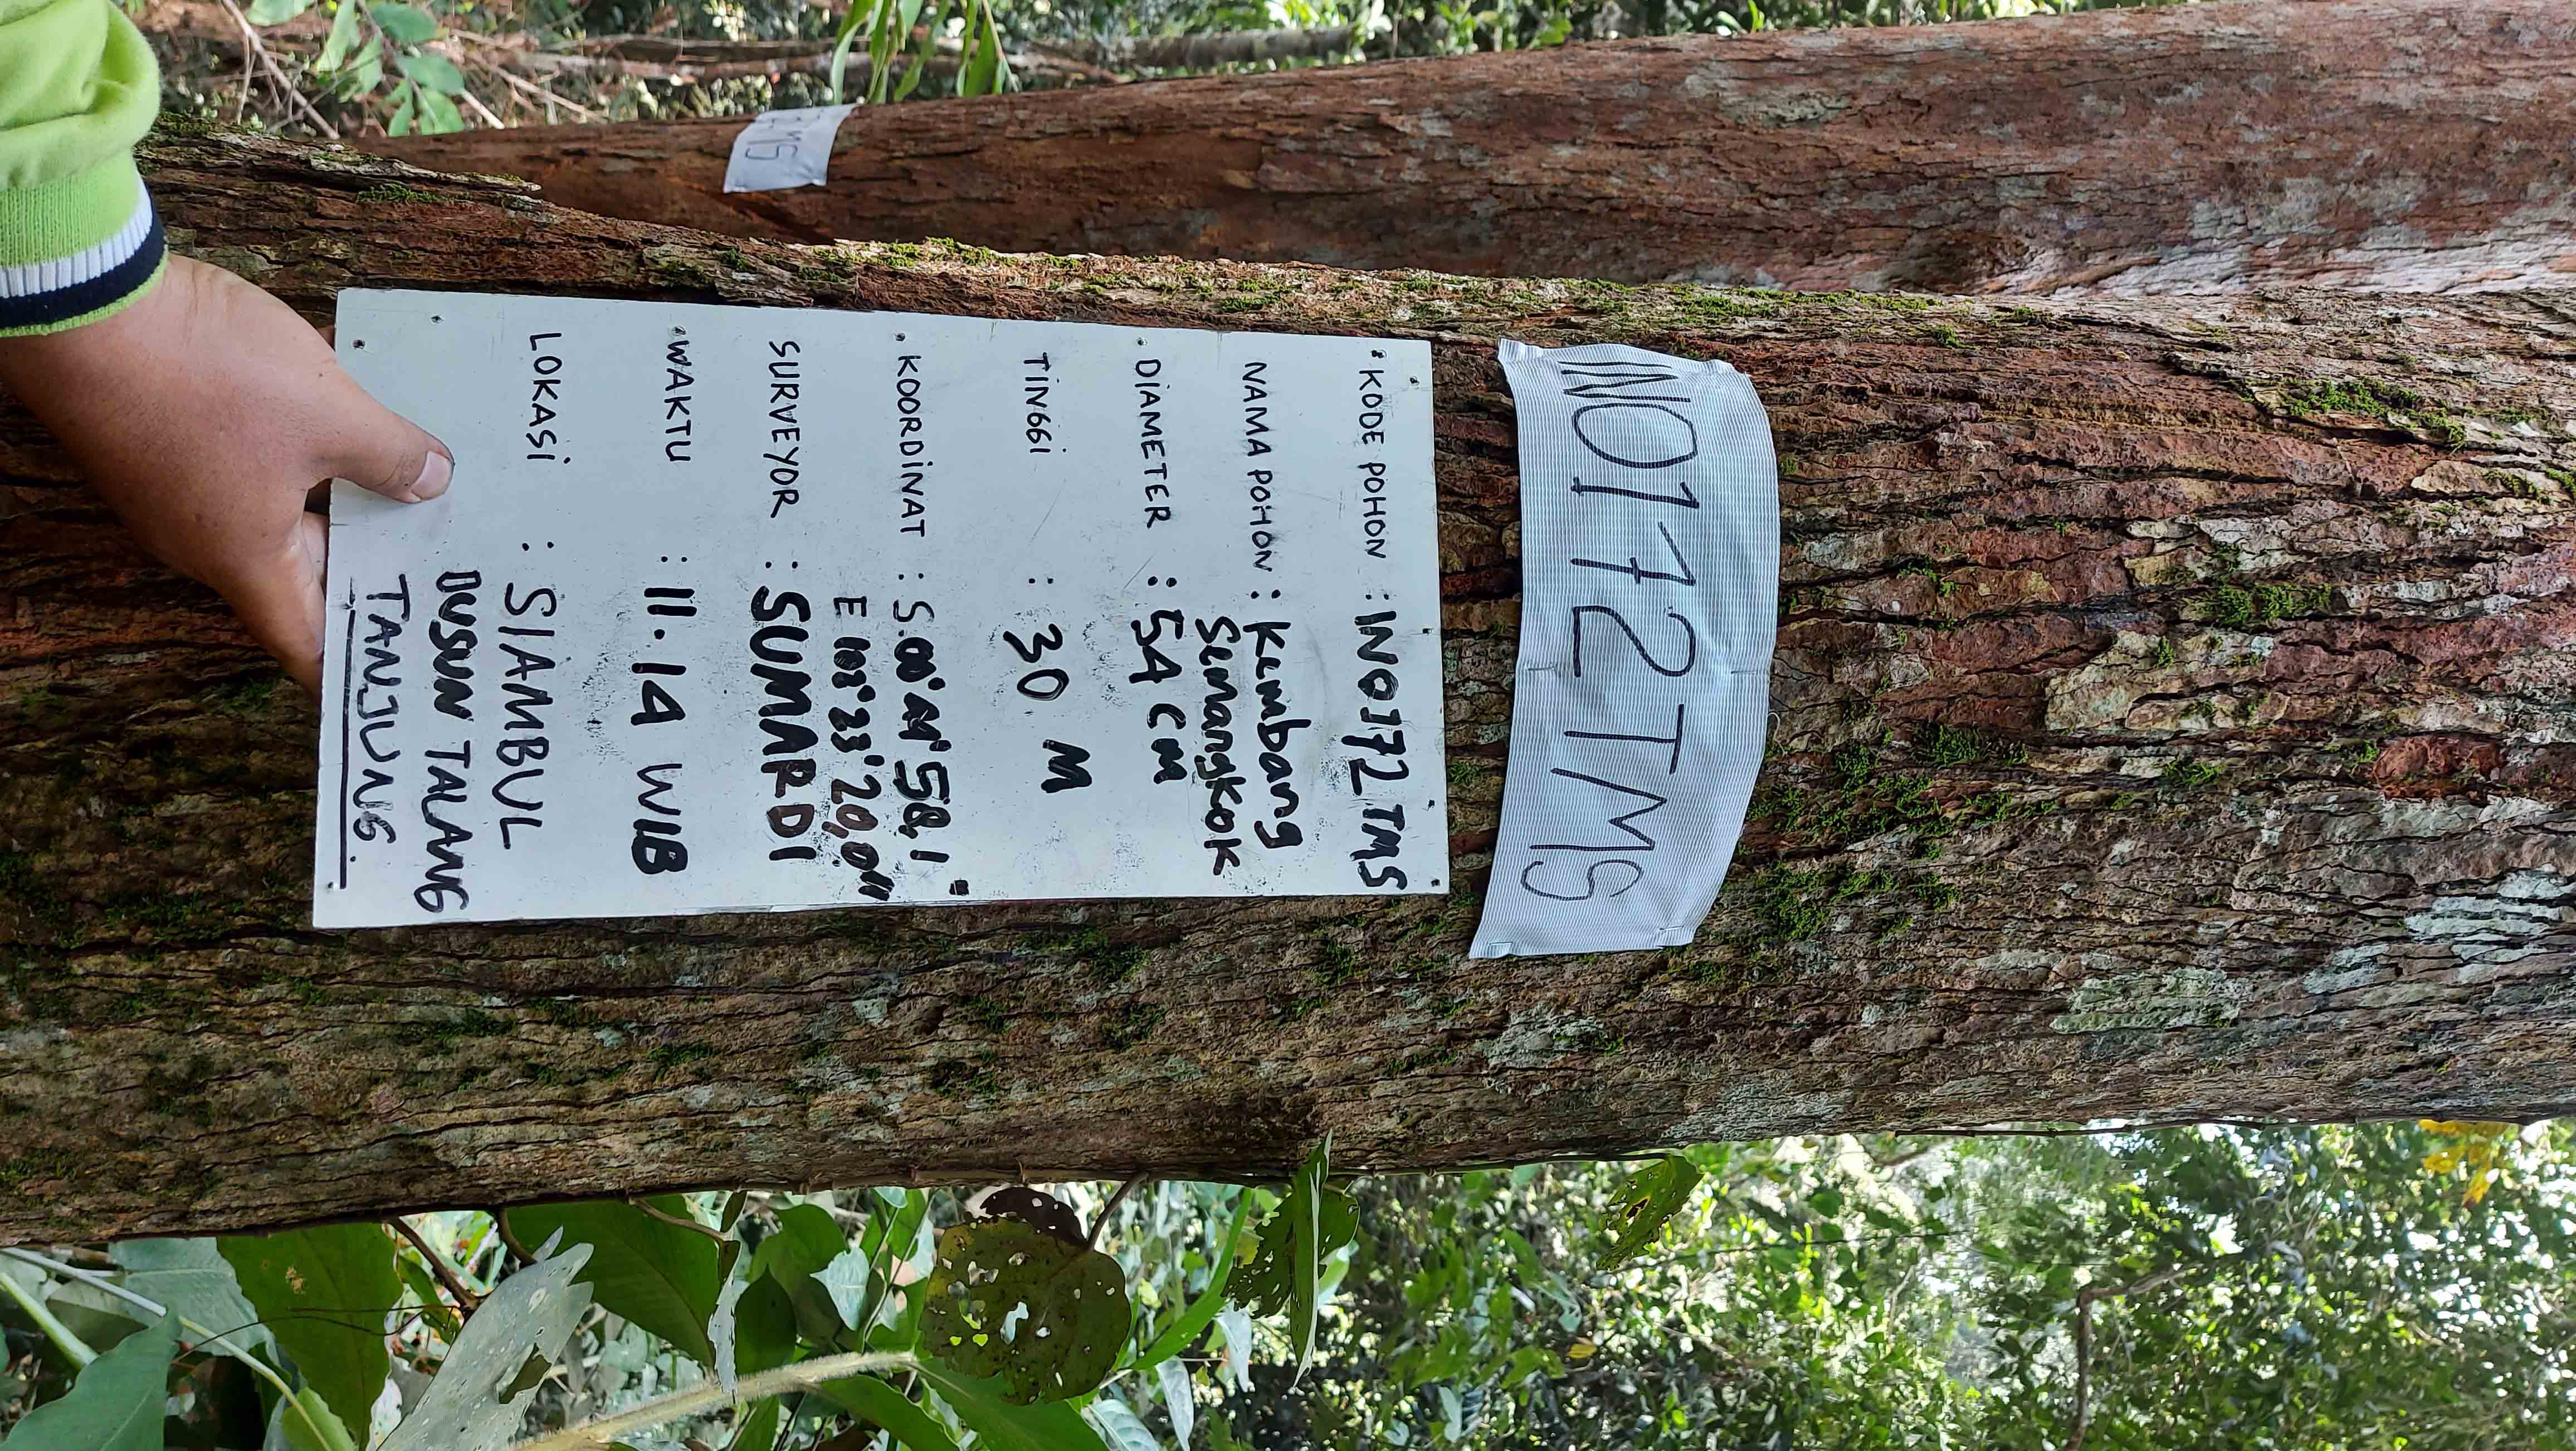 IN0172TMS
KODE POHON : IN0172 TMS
NAMA POHON : Kembang
Semangkok
DIAMETER : 54 CM
TINGGI : 30 M
KOORDINAT : S.00°44'58,1"
E 102°23'20,0"
SURVEYOR : SUMARDI
WAKTU : 11.14 WIB
LOKASI : SIAMBUL
DUSUN TALANG
TANJUNG.